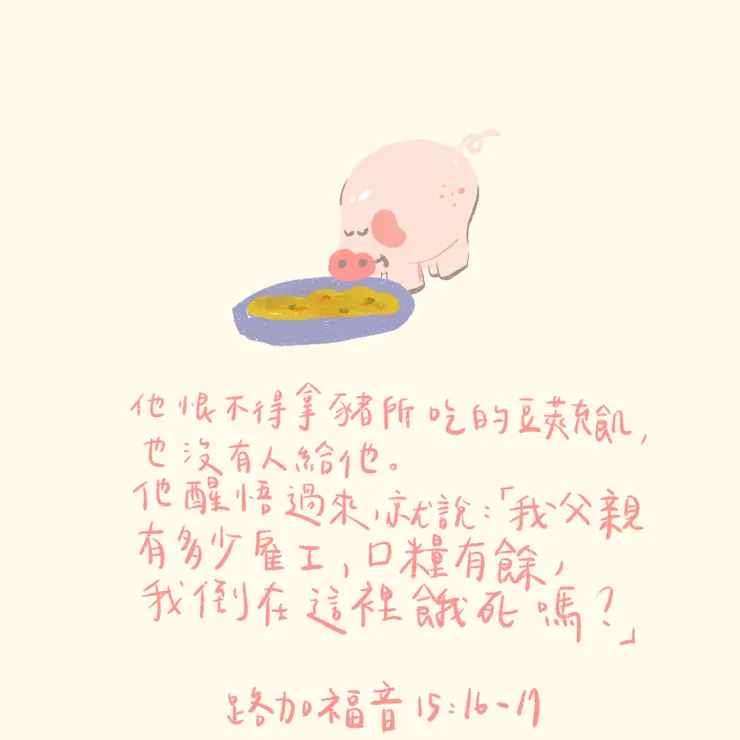 他恨不得拿豬所吃的豆莢充飢,
也沒有人給他。
他醒悟過來,就說:「我父親
有多少雇工,口糧有餘,
我倒在這裡餓死嗎?」
路加福音15:16-17